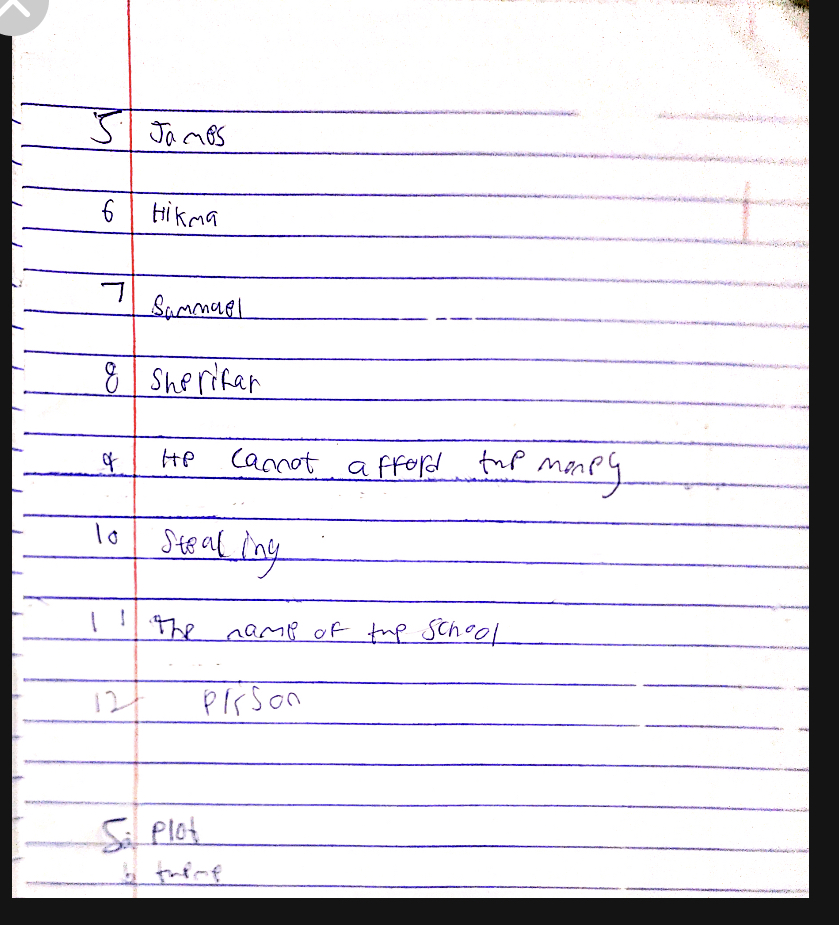 5 James
6 Hikma
7 Sammuel
8 Sherifar
9 He cannot afford the money
10 Stealing
11 The name of the school
12 Prison
5a plot
b theme